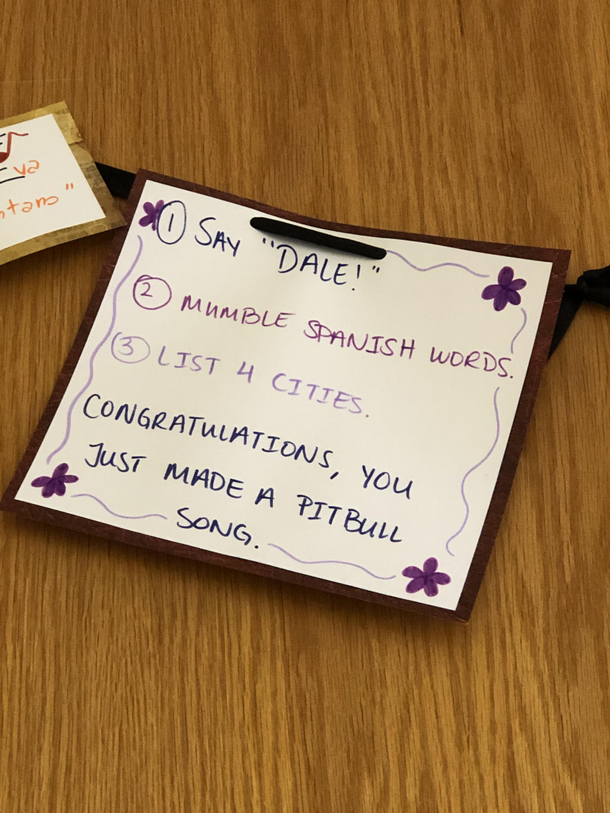 va
① SAY "DALE!"
② MUMBLE SPANISH WORDS.
③ LIST 4 CITIES.
CONGRATULATIONS, YOU
JUST MADE A PITBULL
SONG.